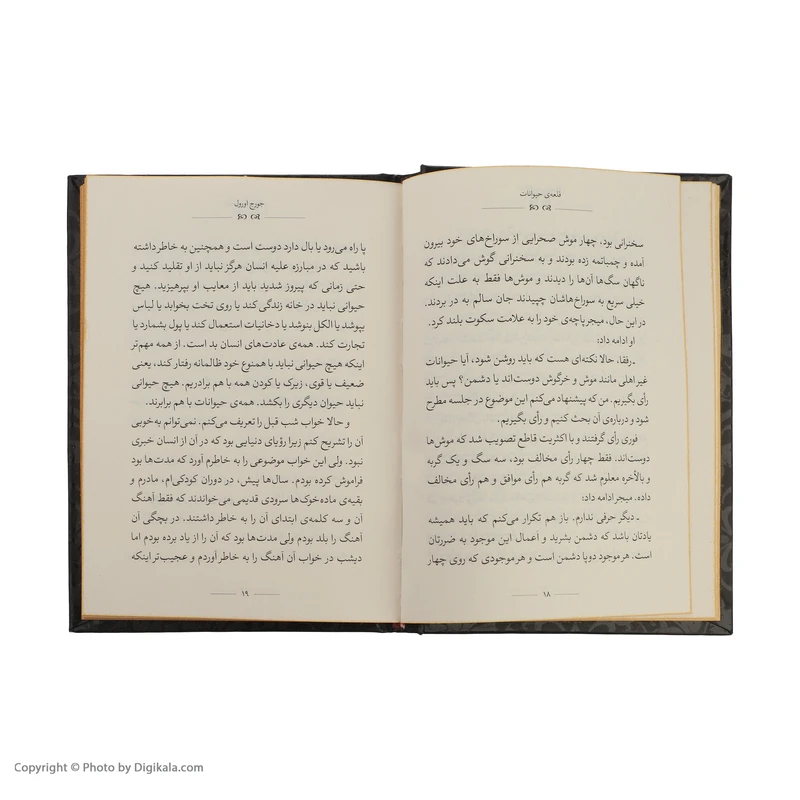 قلعه‌ی حیوانات
سخنرانی بود، چهار موش صحرایی از سوراخ‌های خود بیرون
آمده و چمباتمه زده بودند و به سخنرانی گوش می‌دادند که
ناگهان سگ‌ها آن‌ها را دیدند و موش‌ها فقط به علت اینکه
خیلی سریع به سوراخ‌هاشان چپیدند جان سالم به در بردند.
در این حال، میجر پاچه‌ی خود را به علامت سکوت بلند کرد.
او ادامه داد:
ـ رفقا، حالا نکته‌ای هست که باید روشن شود، آیا حیوانات
غیر اهلی مانند موش و خرگوش دوست‌اند یا دشمن؟ پس باید
رأی بگیریم. من که پیشنهاد می‌کنم این موضوع در جلسه مطرح
شود و درباره‌ی آن بحث کنیم و رأی بگیریم.
فوری رأی گرفتند و با اکثریت قاطع تصویب شد که موش‌ها
دوست‌اند. فقط چهار رأی مخالف بود، سه سگ و یک گربه
و بالأخره معلوم شد که گربه هم رأی موافق و هم رأی مخالف
داده. میجر ادامه داد:
ـ دیگر حرفی ندارم. باز هم تکرار می‌کنم که باید همیشه
یادتان باشد که دشمن بشرید و اعمال این موجود به ضررتان
است. هر موجود دوپا دشمن است و هر موجودی که روی چهار
۱۸
جورج اورول
پا راه می‌رود یا بال دارد دوست است و همچنین به خاطر داشته
باشید که در مبارزه علیه انسان هرگز نباید از او تقلید کنید و
حتی زمانی که پیروز شدید باید از معایب او بپرهیزید. هیچ
حیوانی نباید در خانه زندگی کند یا روی تخت بخوابد یا لباس
بپوشد یا الکل بنوشد یا دخانیات استعمال کند یا پول بشمارد یا
تجارت کند. همه‌ی عادت‌های انسان بد است. از همه مهم‌تر
اینکه هیچ حیوانی نباید با همنوع خود ظالمانه رفتار کند، یعنی
ضعیف یا قوی، زیرک یا کودن همه با هم برادریم. هیچ حیوانی
نباید حیوان دیگری را بکشد. همه‌ی حیوانات با هم برابرند.
و حالا خواب شب قبل را تعریف می‌کنم. نمی‌توانم به‌خوبی
آن را تشریح کنم زیرا رؤیای دنیایی بود که در آن از انسان خبری
نبود. ولی این خواب موضوعی را به خاطرم آورد که مدت‌ها بود
فراموش کرده بودم. سال‌ها پیش، در دوران کودکی‌ام، مادرم و
بقیه‌ی ماده‌خوک‌ها سرودی قدیمی می‌خواندند که فقط آهنگ
آن و سه کلمه‌ی ابتدای آن را به خاطر داشتند. در بچگی آن
آهنگ را بلد بودم ولی مدت‌ها بود که آن را از یاد برده بودم اما
دیشب در خواب آن آهنگ را به خاطر آوردم و عجیب‌تر اینکه
۱۹
Copyright © Photo by Digikala.com